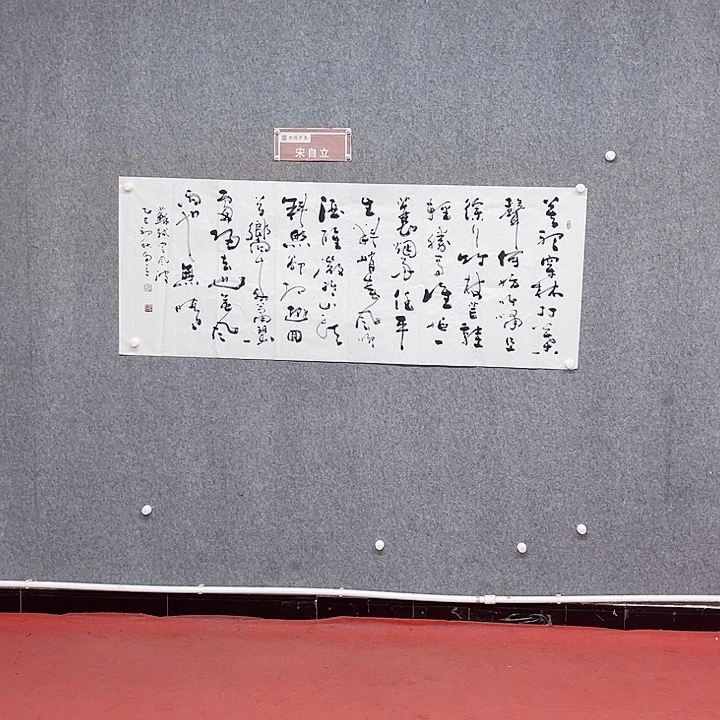 宋自立
莫聽穿林打葉
聲何妨吟嘯且
徐行竹杖芒鞋
輕勝馬誰怕一
蓑烟雨任平
生料峭春風吹
酒醒微冷山頭
斜照卻相迎回
首嚮来蕭瑟
處歸去也無風
雨也無晴
蘇軾定風波
乙巳初秋自立